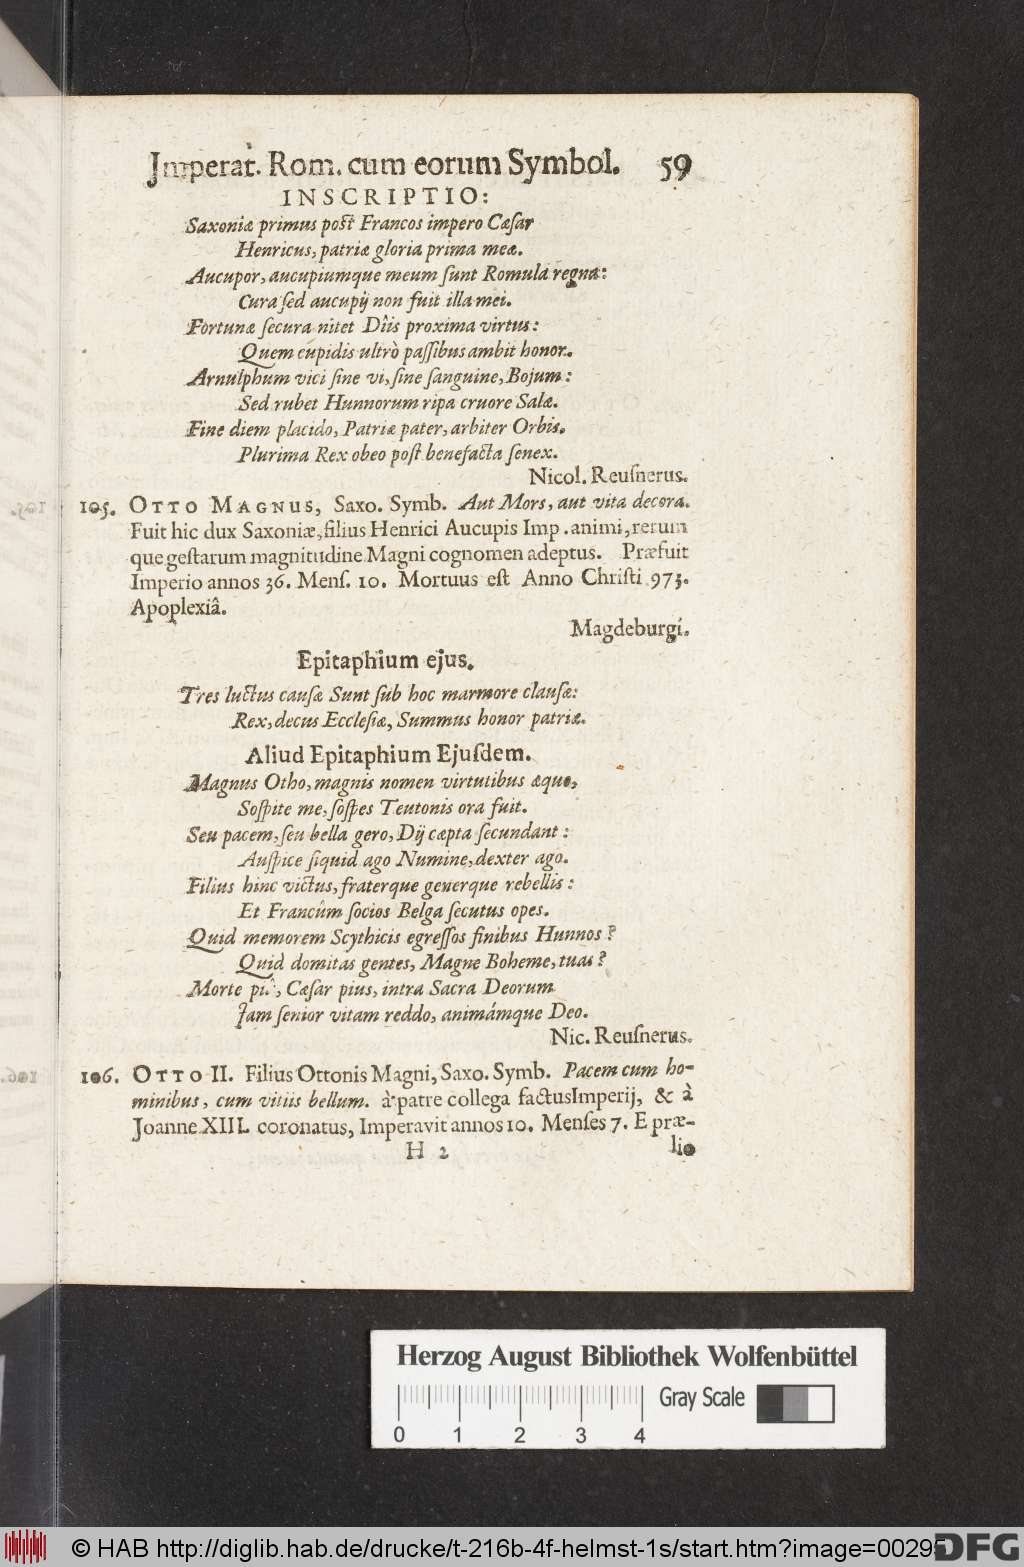 Imperat. Rom. cum eorum Symbol. 59
INSCRIPTIO:
Saxoniæ primus post Francos impero Cæsar
Henricus, patriæ gloria prima meæ.
Aucupor, aucupiumque meum sunt Romula regna:
Cura sed aucupij non fuit illa mei.
Fortunæ secura nitet Dîis proxima virtus:
Quem cupidis ultrò passibus ambit honor.
Arnulphum vici sine vi, sine sanguine, Bojum:
Sed rubet Hunnorum ripa cruore Salæ.
Fine diem placido, Patriæ pater, arbiter Orbis.
Plurima Rex obeo post benefacta senex.
Nicol. Reusnerus.
105. OTTO MAGNUS, Saxo. Symb. Aut Mors, aut vita decora.
Fuit hic dux Saxoniæ, filius Henrici Aucupis Imp. animi, rerum
que gestarum magnitudine Magni cognomen adeptus. Præfuit
Imperio annos 36. Mens. 10. Mortuus est Anno Christi 973.
Apoplexiâ.
Magdeburgi.
Epitaphium ejus.
Tres luctus causæ Sunt sub hoc marmore clausæ:
Rex, decus Ecclesiæ, Summus honor patriæ.
Aliud Epitaphium Ejusdem.
Magnus Otho, magnis nomen virtutibus æquo,
Sospite me, sospes Teutonis ora fuit.
Seu pacem, seu bella gero, Dij cæpta secundant:
Auspice siquid ago Numine, dexter ago.
Filius hinc victus, fraterque generque rebellis:
Et Francûm socios Belga secutus opes.
Quid memorem Scythicis egressos finibus Hunnos?
Quid domitas gentes, Magne Boheme, tuas?
Morte piâ, Cæsar pius, intra Sacra Deorum
Jam senior vitam reddo, animámque Deo.
Nic. Reusnerus.
106. OTTO II. Filius Ottonis Magni, Saxo. Symb. Pacem cum ho-
minibus, cum vitiis bellum. à patre collega factus Imperij, & à
Joanne XIII. coronatus, Imperavit annos 10. Menses 7. E præ-
H 2 lio
Herzog August Bibliothek Wolfenbüttel
Gray Scale
0 1 2 3 4
© HAB http://diglib.hab.de/drucke/t-216b-4f-helmst-1s/start.htm?image=00295
DFG